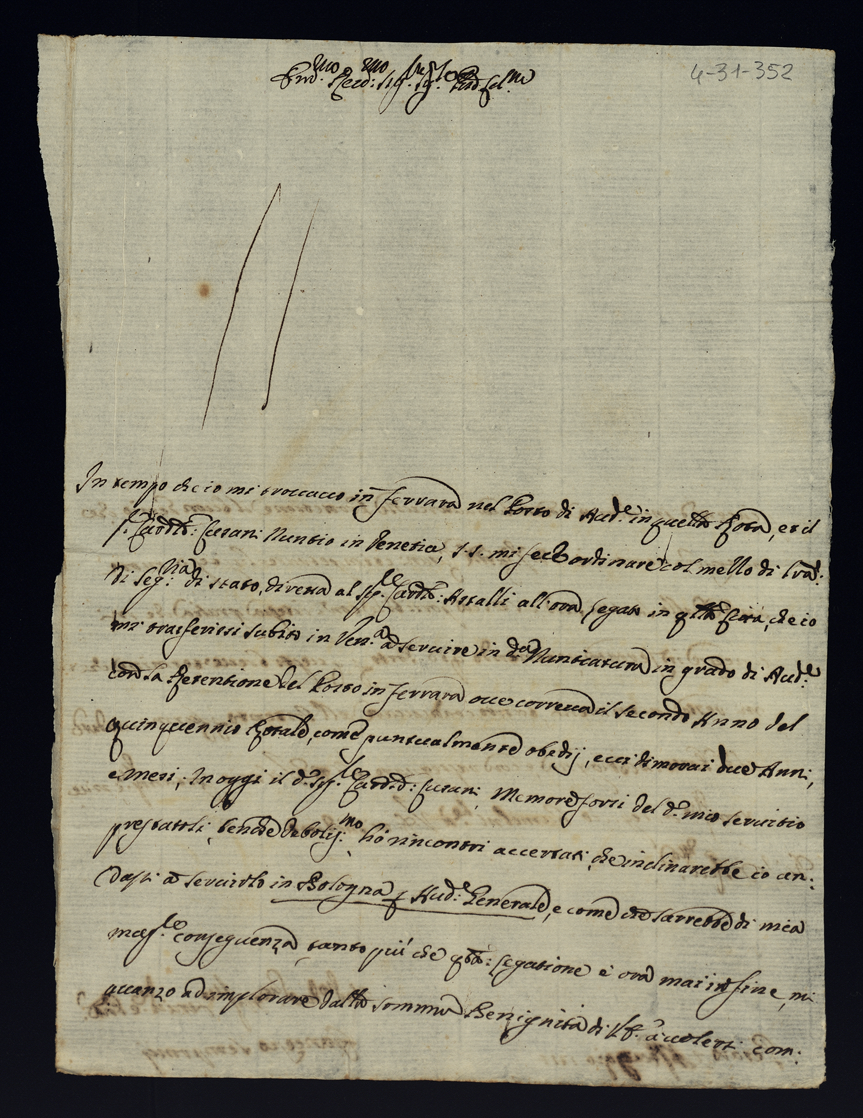 4-31-352
Em.mo Rev.mo Sig.re Sig.
In tempo che io mi trovavo in Ferrara nel Posto di Aud.e in quella Rota, et il
S.r Card.le Cusani Nuntio in Venetia, S.S. mi fece ordinare col mezzo di
di Seg.ria di stato, diretta al Sig.r Card.le Astalli all'ora legato in q.lla Città, che io
mi trasferissi subito in Ven.a à servire in d.a Nuntiatura in grado di Aud.e
con la Retentione del Posto in Ferrara ove correva il secondo Anno del
quinquennio Rotale, come puntualmente obedij, e ci dimorai due Anni,
e Mesi; In oggi il d.o Sig.r Card.le Cusani, Memore forsi del d.o mio servitio
prestatoli, benche debolis.mo hò rincontri accertati, che inclinarebbe io an-
dassi à servirlo in Bologna p Aud.e Generale, e come che sarrebbe di mia
mag.re conseguenza, tanto più che q.ta legatione è ora mai in fine, mi
avanzo ad implorare dalla somma Benignità di V.E. à volersi com-